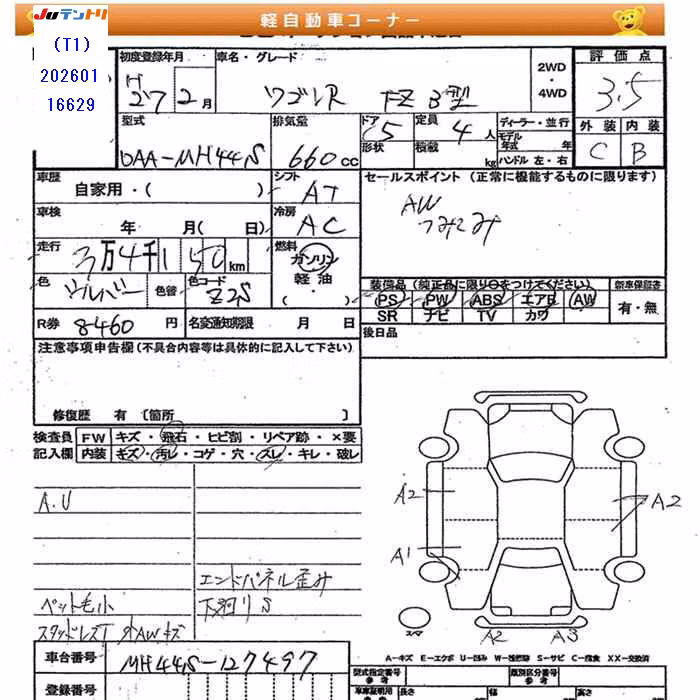 JUテントリ 軽自動車コーナー
(T1)
202601
16629
初度登録年月 車名・グレード 2WD ・4WD 評価点
H27年2月 ワゴンR FZ B型 3.5
型式 排気量 ドア 形状 定員 積載 ディーラー・並行 モデル年式 年 ハンドル 左・右 外装 内装
DAA-MH44S 660cc 5 4人 kg C B
車歴 自家用・( ) シフト AT セールスポイント (正常に機能するものに限ります)
AW
つみこみ
車検 年 月( 日) 冷房 AC
走行 3万4千150km 燃料 ガソリン・軽油・( )
色 シルバー 色替 色コード Z2S
装備品 (純正品に限り○をつけてください) 新車保証書
PS PW ABS エアB AW 有・無
SR ナビ TV カワ
R券 8460円 名変通知期限 月 日 後日品
注意事項申告欄 (不具合内容等は具体的に記入して下さい)
修復歴 有 〔箇所 〕
検査員記入欄 FW キズ・飛石・ヒビ割・リペア跡・×要
内装 キズ・汚レ・コゲ・穴・スレ・キレ・破レ
A.U
A2 A2
A1
エンドパネル歪み
ペット毛小 下廻りS
スタッドレス オAWキズ
スペア A2 A3
A-キズ E-エクボ U-凹み W-波修跡 S-サビ C-腐食 XX-交換済
車台番号 MH44S-127497
型式指定番号 類別区分番号
登録番号 車庫証明用参考 長さ 幅 高さ